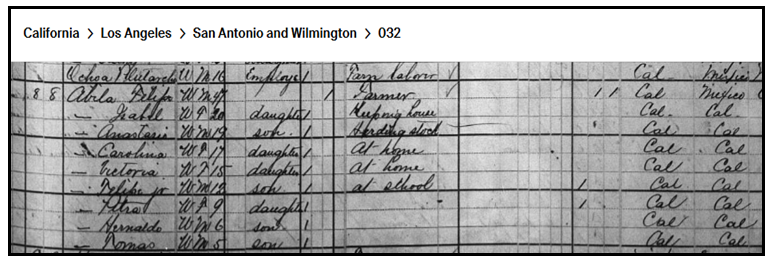 California > Los Angeles > San Antonio and Wilmington > 032
Ochoa W M 16 Employe 1 Farm laborer Cal Mexico
8 8 Abila Felipe W M 47 1 Farmer 1 1 Cal Mexico
— Isabel W F 20 daughter 1 Keeping house Cal. Cal.
— Anastasio W M 19 son. 1 Herding stock Cal Cal
— Carolina W F 17 daughter 1 At home Cal Cal
— Victoria W F 15 daughter 1 At home Cal Cal
— Felipe jr W M 12 son 1 at school 1 Cal Cal
— Petra W F 9 daughter 1 1 Cal Cal
— Hernaldo W M 6 son 1 Cal Cal
— Tomas W M 5 son 1 Cal Cal